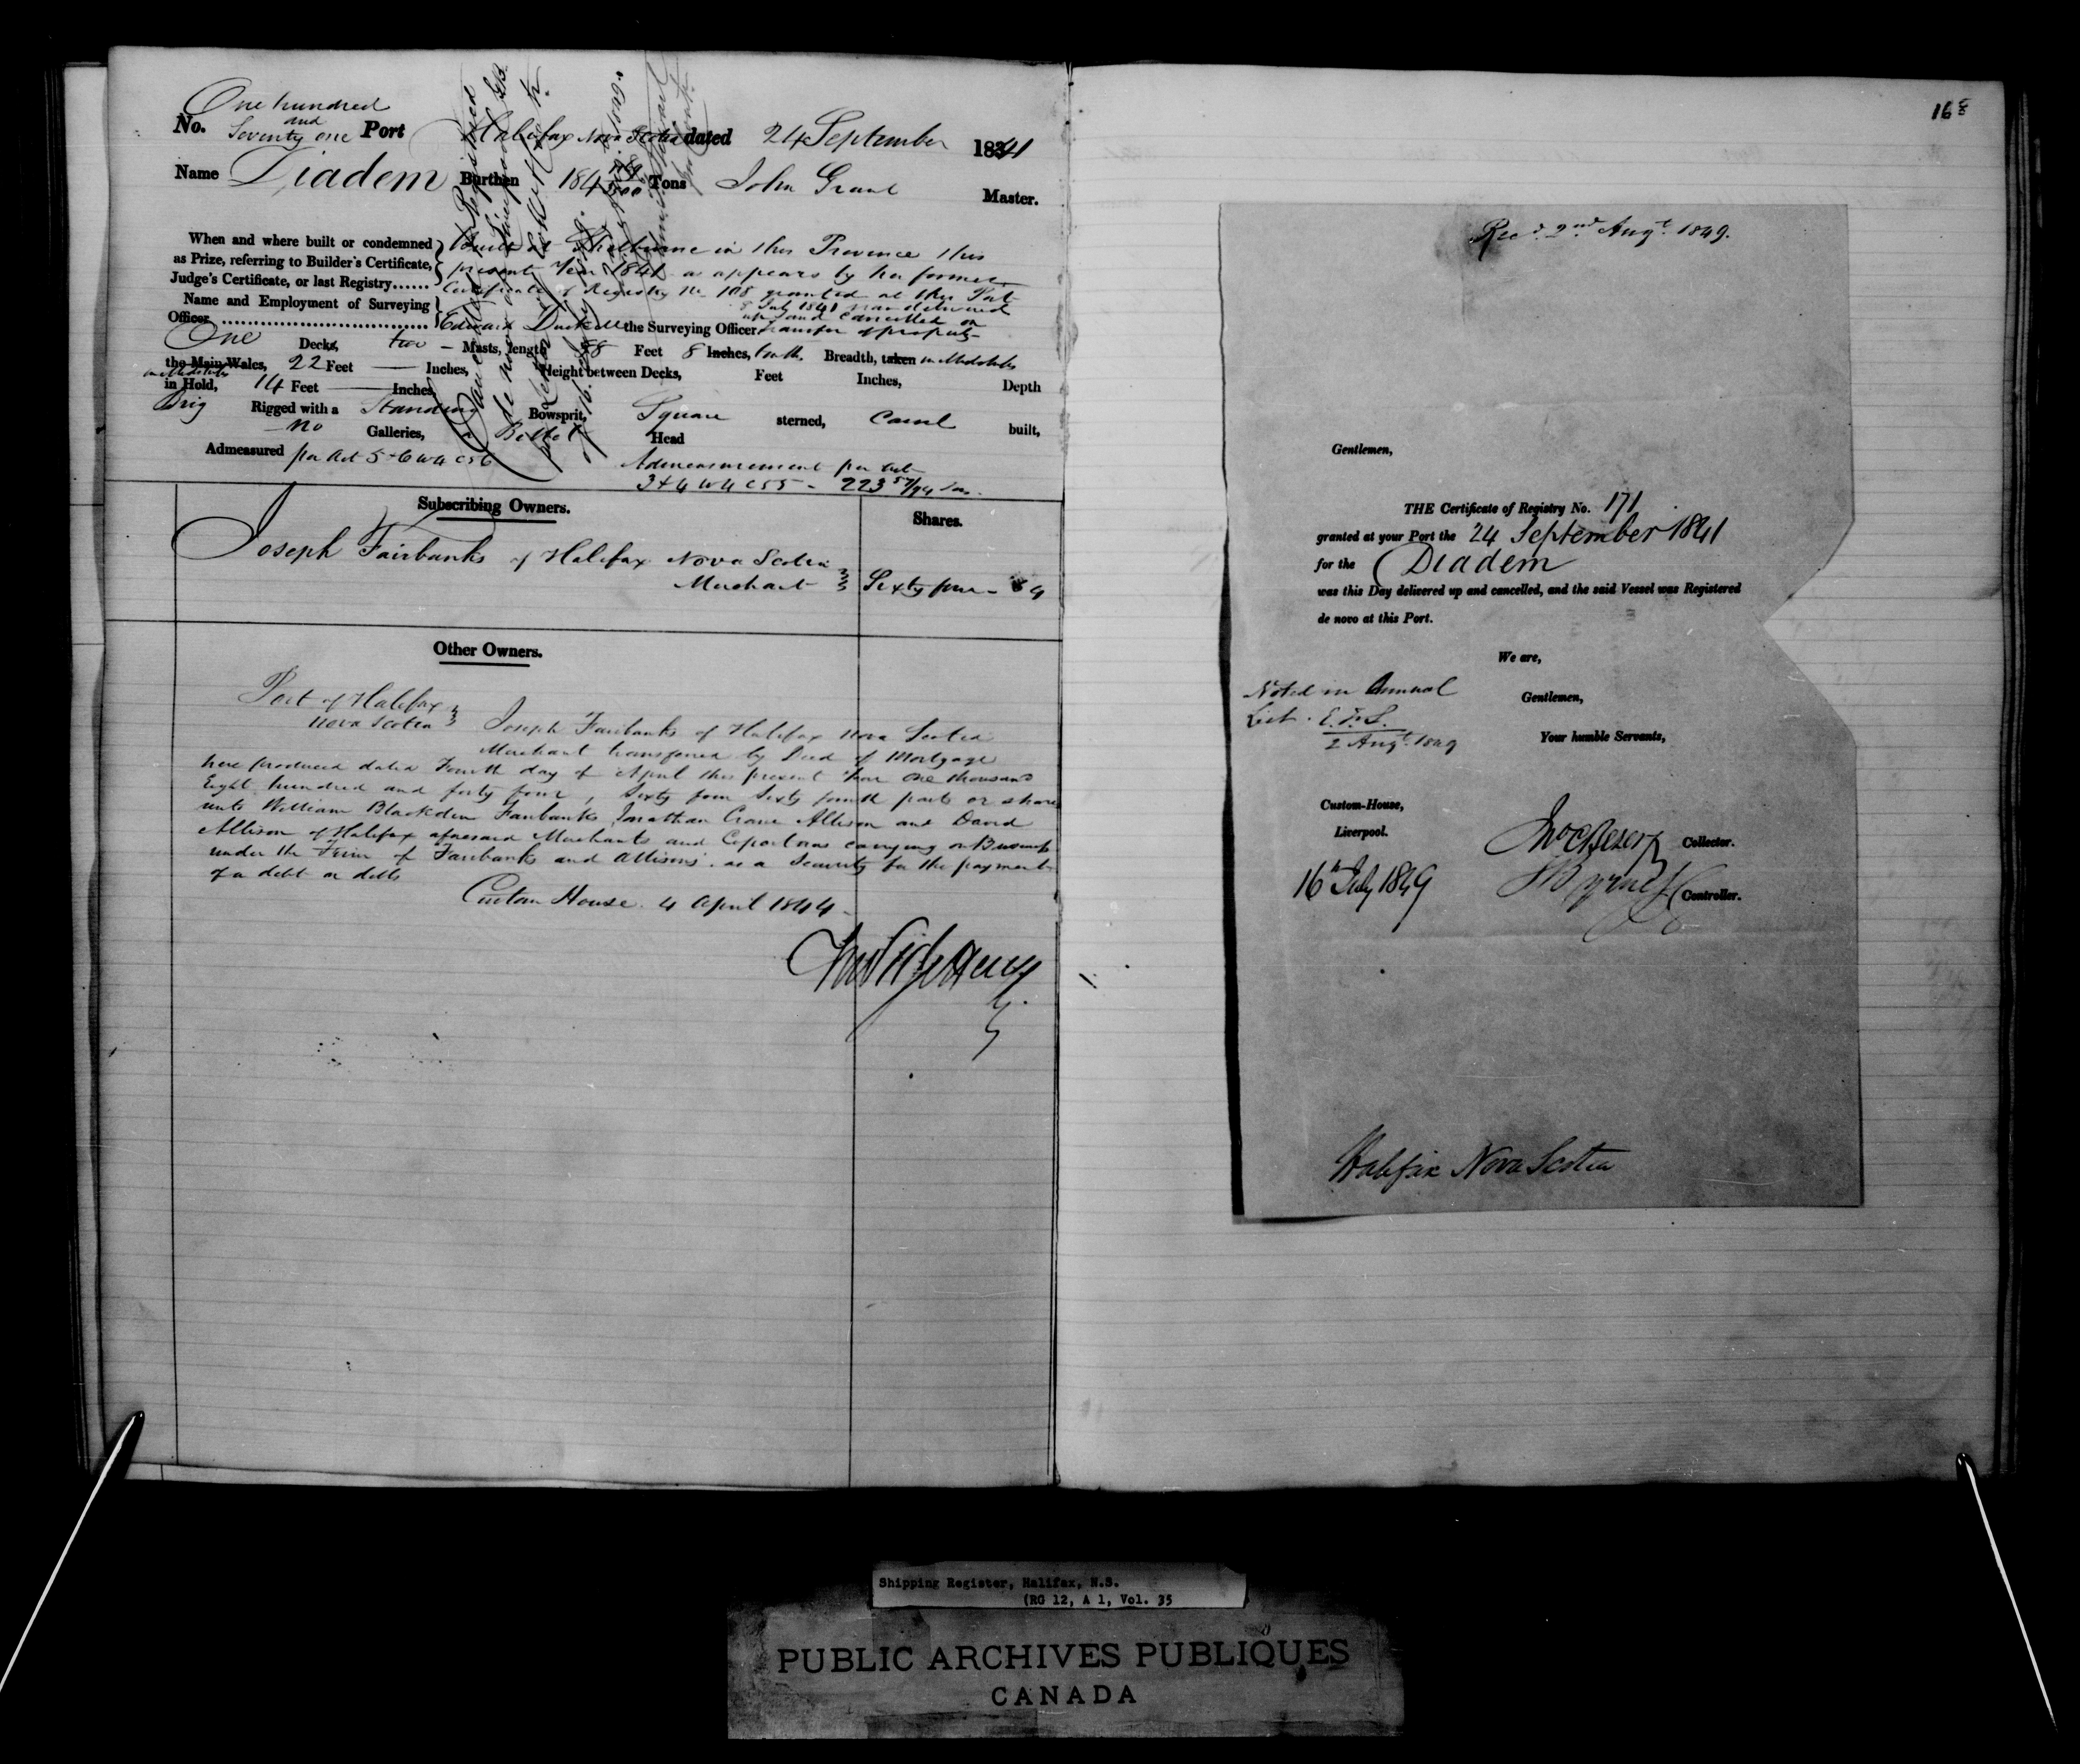 One hundred
and
No. Seventy one Port Halifax Nova Scotia dated 24 September 1841
Name Diadem Burthen 184 Tons John Grant Master.
When and where built or condemned
as Prize, referring to Builder's Certificate,
Judge's Certificate, or last Registry......
Built at Shelburne in this Province this
present Year 1841 as appears by her former
Certificate of Registry No 108 granted at this Port
8 July 1841 now delivered
up and Cancelled on
transfer of property
Name and Employment of Surveying
Officer
Edward the Surveying Officer
One Decks, two Masts, length 88 Feet 8 Inches, tenths, Breadth, taken in Midships
the Main Wales, 22 Feet — Inches, Height between Decks, Feet Inches, Depth
in Midships
in Hold, 14 Feet — Inches
Brig Rigged with a Standing Bowsprit, Square sterned, Carvel built,
no Galleries, Billet Head
Admeasured per Act 5 & 6 W 4 C 56
Admeasurement per Act
3 & 4 W 4 C 55 - 223 57/94 Tons
Cancelled & Registered
de novo at Liverpool GB
Subscribing Owners.
Shares.
Joseph Fairbanks of Halifax Nova Scotia
Merchant
Sixty four - 64
Other Owners.
Port of Halifax
Nova Scotia
Joseph Fairbanks of Halifax Nova Scotia
Merchant transferred by Deed of Mortgage
here produced dated Fourth day of April this present Year One thousand
Eight hundred and forty four, Sixty four Sixty fourth parts or shares
unto William Blackden Fairbanks, Jonathan Crane Allison and David
Allison of Halifax aforesaid Merchants and Copartners carrying on Business
under the Firm of Fairbanks and Allisons. as a Security for the payment
of a debt or debts
Custom House. 4 April 1844
168
Recd. 2nd Augt. 1849.
Gentlemen,
THE Certificate of Registry No. 171
granted at your Port the 24 September 1841
for the Diadem
was this Day delivered up and cancelled, and the said Vessel was Registered
de novo at this Port.
We are,
Gentlemen,
Your humble Servants,
Noted in Annual
List. E. F. S.
2 Augt. 1849
Custom-House,
Liverpool.
16th July 1849
Collector.
Controller.
Halifax Nova Scotia
Shipping Register, Halifax, N.S.
(RG 12, A 1, Vol. 35
PUBLIC ARCHIVES PUBLIQUES
CANADA